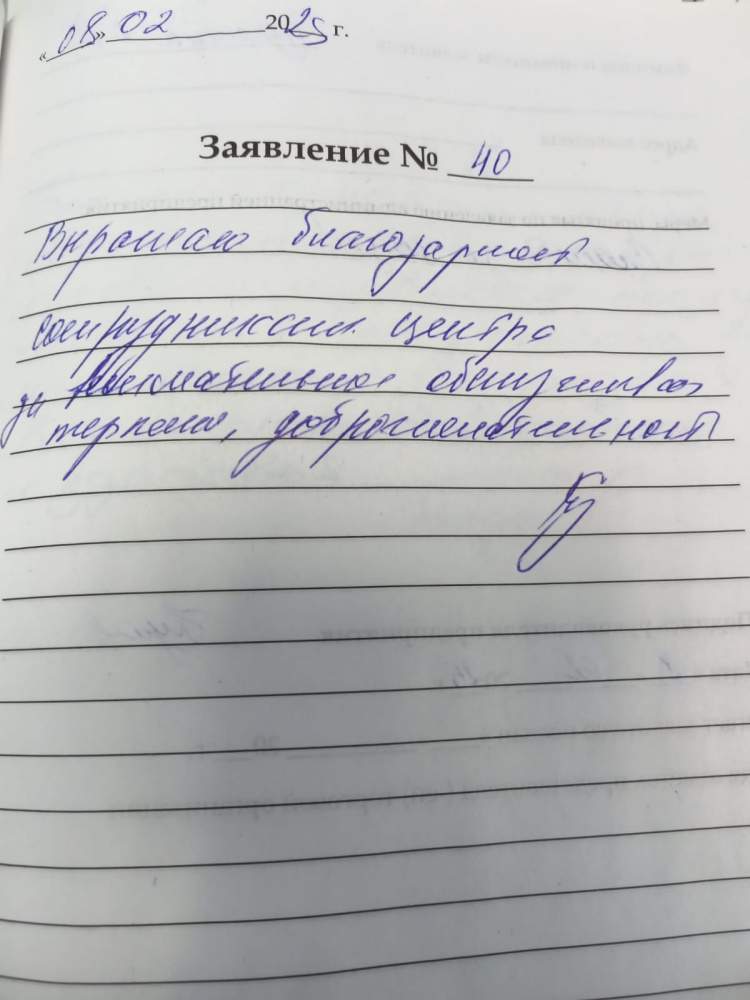 «08» 02 2025 г.
Заявление № 40
Выражаю благодарность
сотрудникам центра
за внимательное обслуживан
терпение, доброжелательность